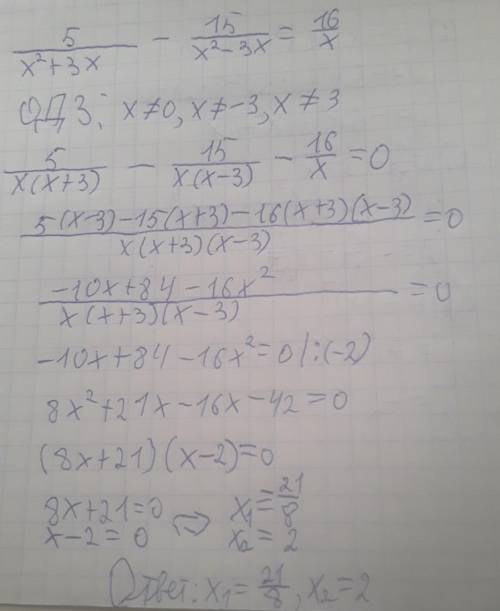 5/(x²+3x) − 15/(x²−3x) = 16/x
ОДЗ: x≠0, x≠−3, x≠3
5/(x(x+3)) − 15/(x(x−3)) − 16/x = 0
(5(x−3)−15(x+3)−16(x+3)(x−3))/(x(x+3)(x−3)) = 0
(−10x+84−16x²)/(x(x+3)(x−3)) = 0
−10x+84−16x²=0 |:(−2)
8x²+21x−16x−42=0
(8x+21)(x−2)=0
8x+21=0 ⇒ x₁=21/8
x−2=0 x₂=2
Ответ: x₁=21/8, x₂=2